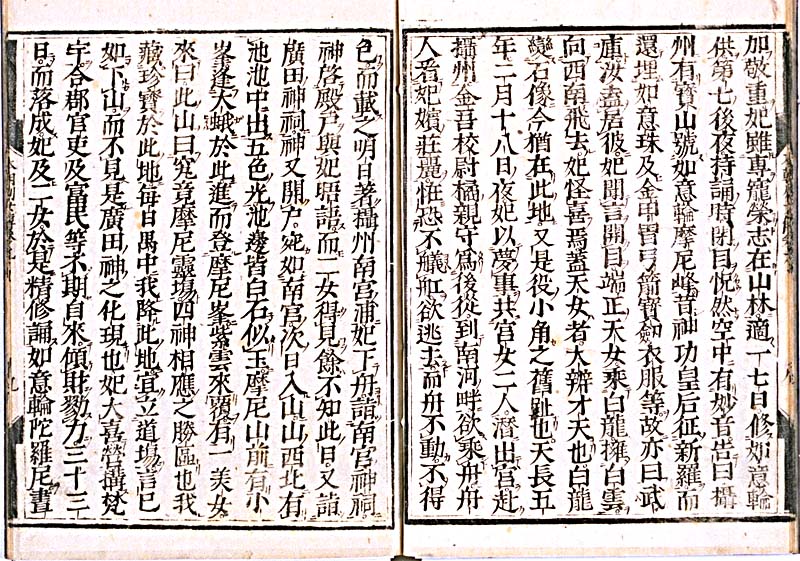 加敬重妃雖專寵榮志在山林適一七日修如意輪
供第七後夜持誦時閉目恍然空中有妙音告曰攝
州有寶山號如意輪摩尼峰昔神功皇后征新羅而
還埋如意珠及金甲冑弓箭寶劍衣服等故亦曰武
庫汝盍居彼妃聞言開目端正天女乘白龍擁白雲
向西南飛去妃怪喜焉蓋天女者大辨才天也白龍
變石像今猶在此地又是役小角之舊趾也天長五
年二月十八日夜妃以夢事共宮女二人潛出宮赴
攝州金吾校尉橘親守爲後從到南河畔欲乘舟舟
人看妃嬪莊麗恠恐不艤舡欲逃去而舟不動不得
色而載之明日著攝州南宮浦妃下舟詣南宮神祠
神啓殿戸與妃晤語而二女得見餘不知此日又詣
廣田神祠神又開戸宛如南宮次日入山山西北有
池池中出五色光池邊皆白石似玉摩尼山前有小
峯逢大蛾於此進而登摩尼峯紫雲來覆有一美女
來曰此山曰究竟摩尼靈場四神相應之勝區也我
藏珍寶於此地每日禺中我降此地宜立道場言已
如下山而不見是廣田神之化現也妃大喜營搆梵
宇合郡官吏及富民等不期自來傾財勠力三十三
日而落成妃及二女於是精修誦如意輪陀羅尼晝